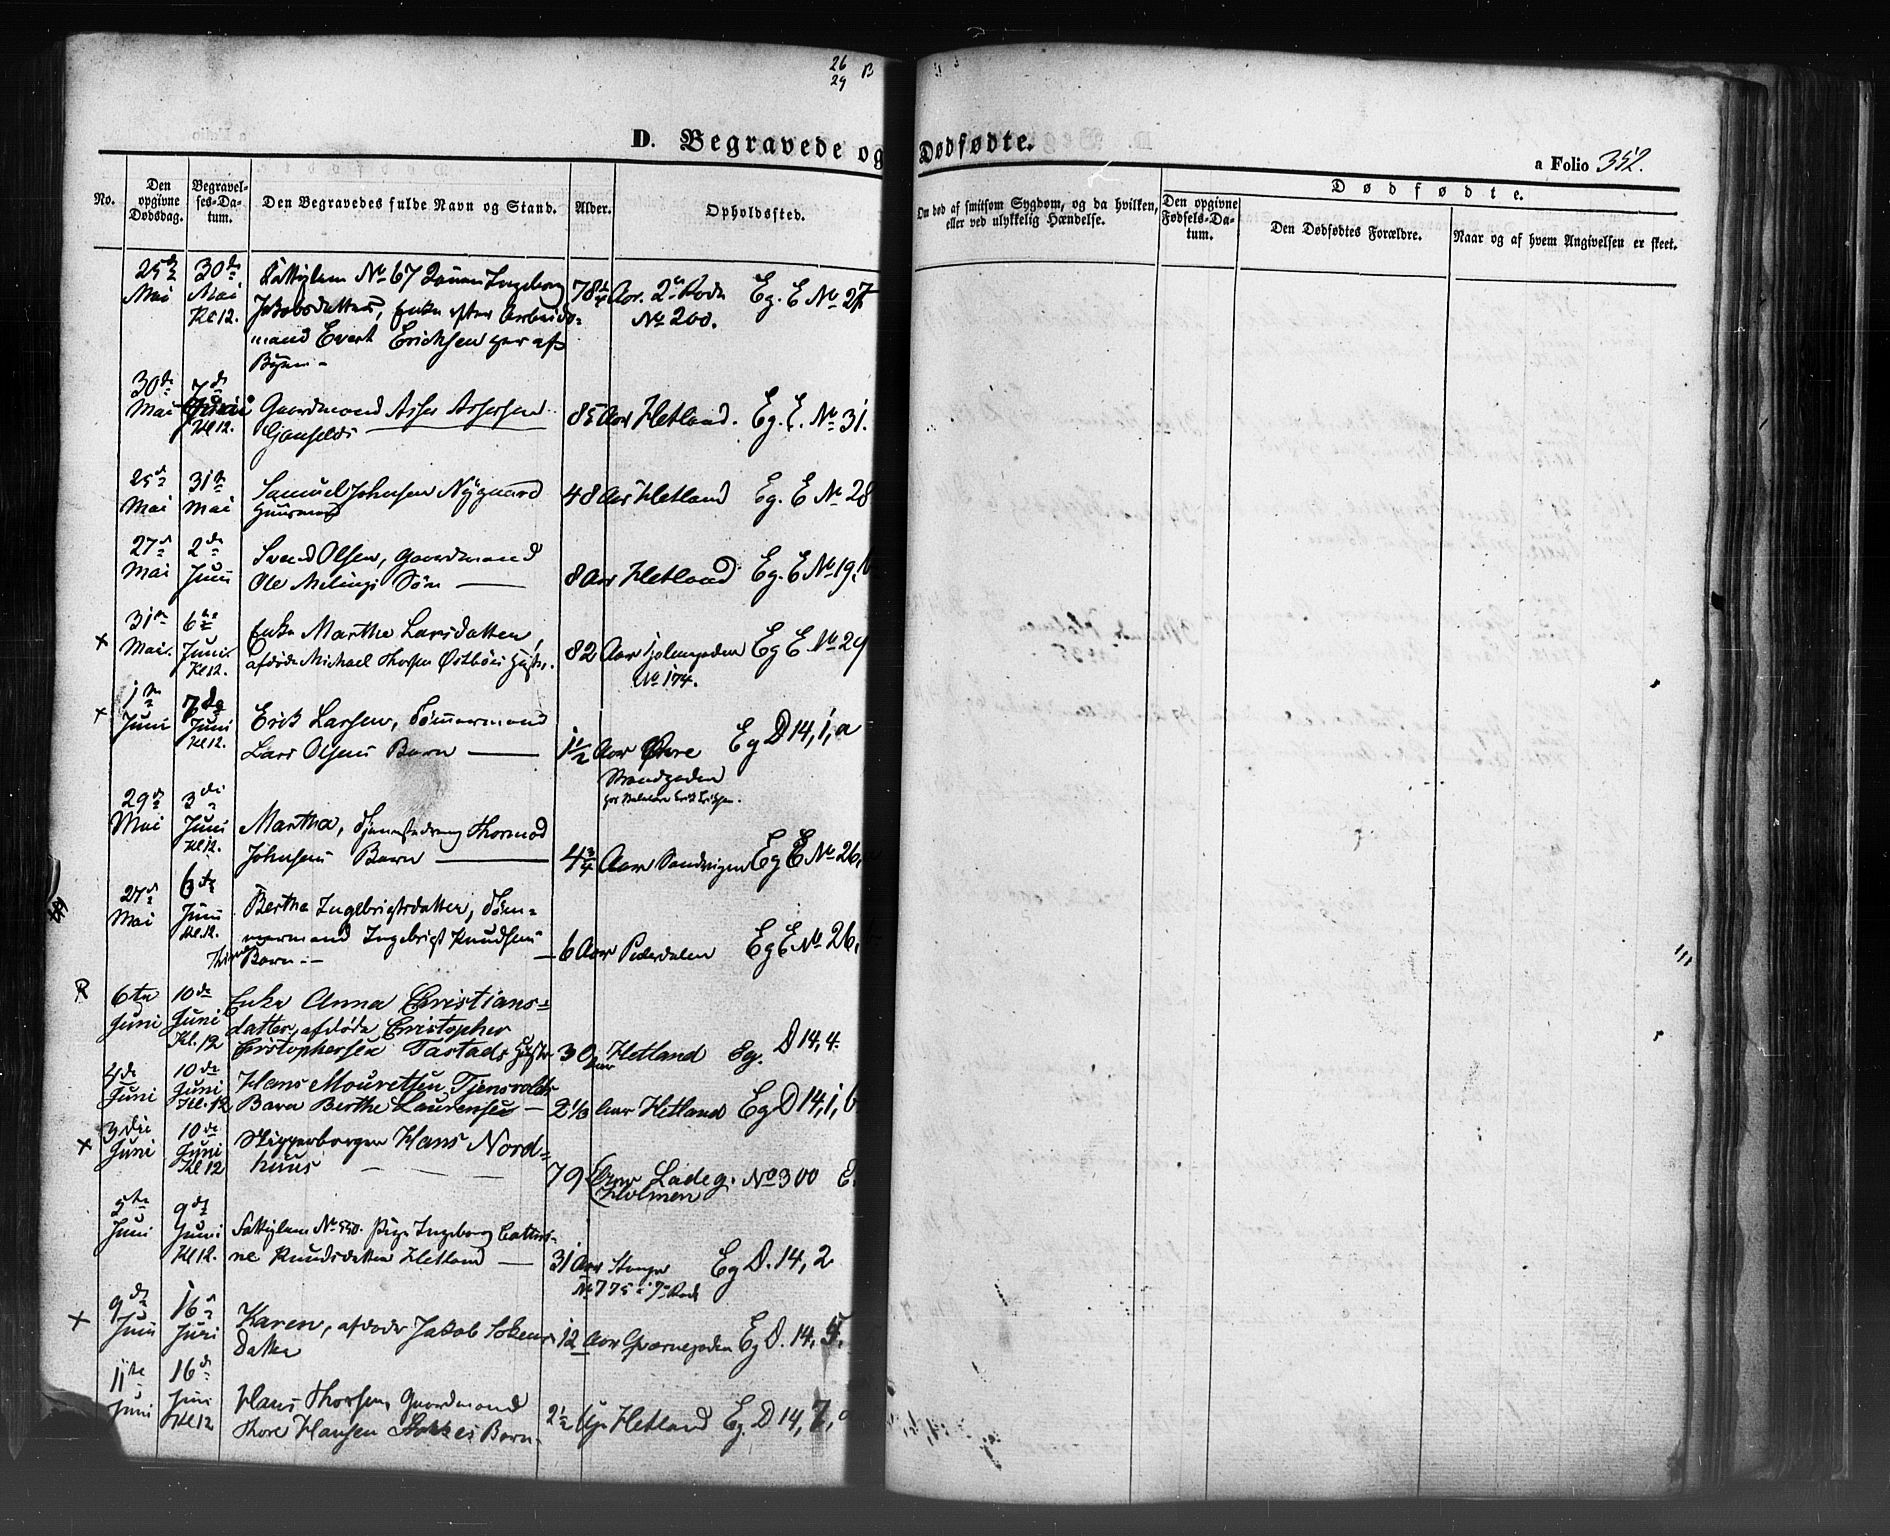 26
29
B
D. Begravede og Dødfødte.
a Folio 352.
No.
Den opgivne Dødsdag.
Begravelses-Datum.
Den Begravedes fulde Navn og Stand.
Alder.
Opholdssted.
Om død af smitsom Sygdom, og da hvilken, eller ved ulykkelig Hændelse.
Dødfødte.
Den opgivne Fødsels-Datum.
Den Dødfødtes Forældre.
Naar og af hvem Angivelsen er skeet.
25de 30de Fattiglem No 67 Ingeborg 78 Aar. 2n Rode Eg. E No 27
Mai Mai Jakobsdatter, Enke efter Arbeids- No 200.
Kl 12. mand Evert Erichsen her af
Byen -
30de 7de
Mai Juni Gaardmand Asser Assersen 85 Aar Hetland. Eg. E. No 31.
Kl 12.
25de 31te Samuel Johnsen Nygaard 48 Aar Hetland Eg. E No 28
Mai Mai Huusmand
27de 2de Svend Olsen, Gaardmand
Mai Juni Ole Melings Søn 8 Aar Hetland Eg. E No 19, b
31te 6te Enke Marthe Larsdatter,
x Mai. Juni afdøde Michael Thorsen Østbøes 82 Aar Eg E No 29
Kl 12. No 174.
1te 7de Erik Larsen, Tømmermand
x Juni Juni Lars Olsens Barn 1½ Aar Øvre Eg D 14, 1, a
Kl 12. Strandgaden
29de 3die
Mai Juni Martha, Thormod
Kl 12. Johnsens Barn 4¾ Aar Sandvigen Eg E No 26,
27de 6te Bertha Ingebrigtsdatter, Tøm-
Mai Juni mermand Ingebrigt Knudsens
Kl. 12. Barn - 6 Aar Pedersdalen Eg E No 26,
R 6te 10de Enke Anna Christians-
Juni Juni datter, afdøde Christopher
Kl. 12 Christophersen Tastads 30 Aar Hetland Eg. D 14, 4.
4de 10de Hans Mouretsen Tjensvolds
Juni Juni Barn Berthe Laurense 2⅓ Aar Hetland Eg D 14, 1, b
Kl. 12
3die 10de Skipperborger Hans Nord-
x Juni Juni huus 79 Aar Ladeg. No 300 E.
Kl 12 Holmen
5te 9de
Juni Juni Fattiglem No 550. Pige Ingeborg Cathri-
Kl 12. ne Knudsdatter Hetland 31 Aar Eg D. 14, 2
No 775 i 7de Rode
9de 16de
x Juni Juni Karen, afdøde Jakob 12 Aar Eg D. 14, 5.
Datter
11te 16de
Juni Juni Hans Thorsen, Gaardmand
Kl 12 Thore Hansen Stokkes Barn 2½ Hetland Eg. D 14, 7, a